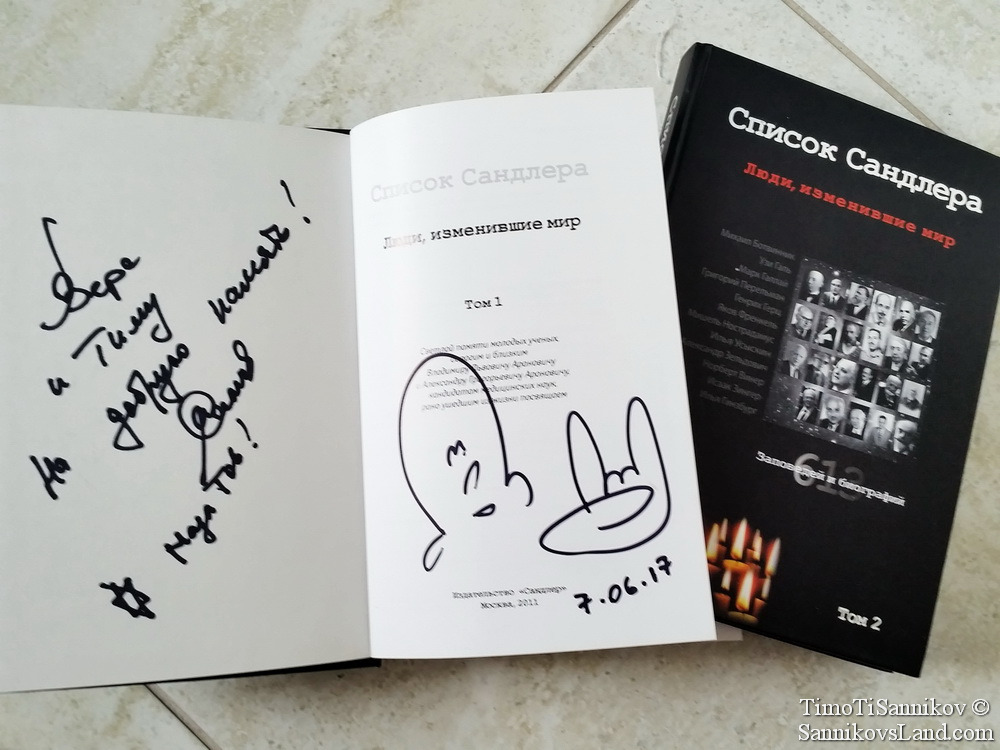 Вере
и Тиму
На добрую память!
Мазл Тов!
Список Сандлера
Люди, изменившие мир
Том 1
Светлой памяти молодых ученых
дорогим и близким
Владимиру Львовичу Ароновичу
и Александру Григорьевичу Ароновичу,
кандидатом медицинских наук
рано ушедшим из жизни посвящаем
Издательство «Сандлер»
Москва, 2011
7.06.17
Список Сандлера
Люди, изменившие мир
Михаил Ботвинник
Узи Галь
Марк Галлай
Григорий Перельман
Генрих Герц
Яков Френкель
Мишель Нострадамус
Илья Усыскин
Александр Зельдович
Норберт Винер
Исаак Зингер
Илья Гинзбург
613
Заповедей и биографий
Том 2
TimoTiSannikov ©
SannikovsLand.com